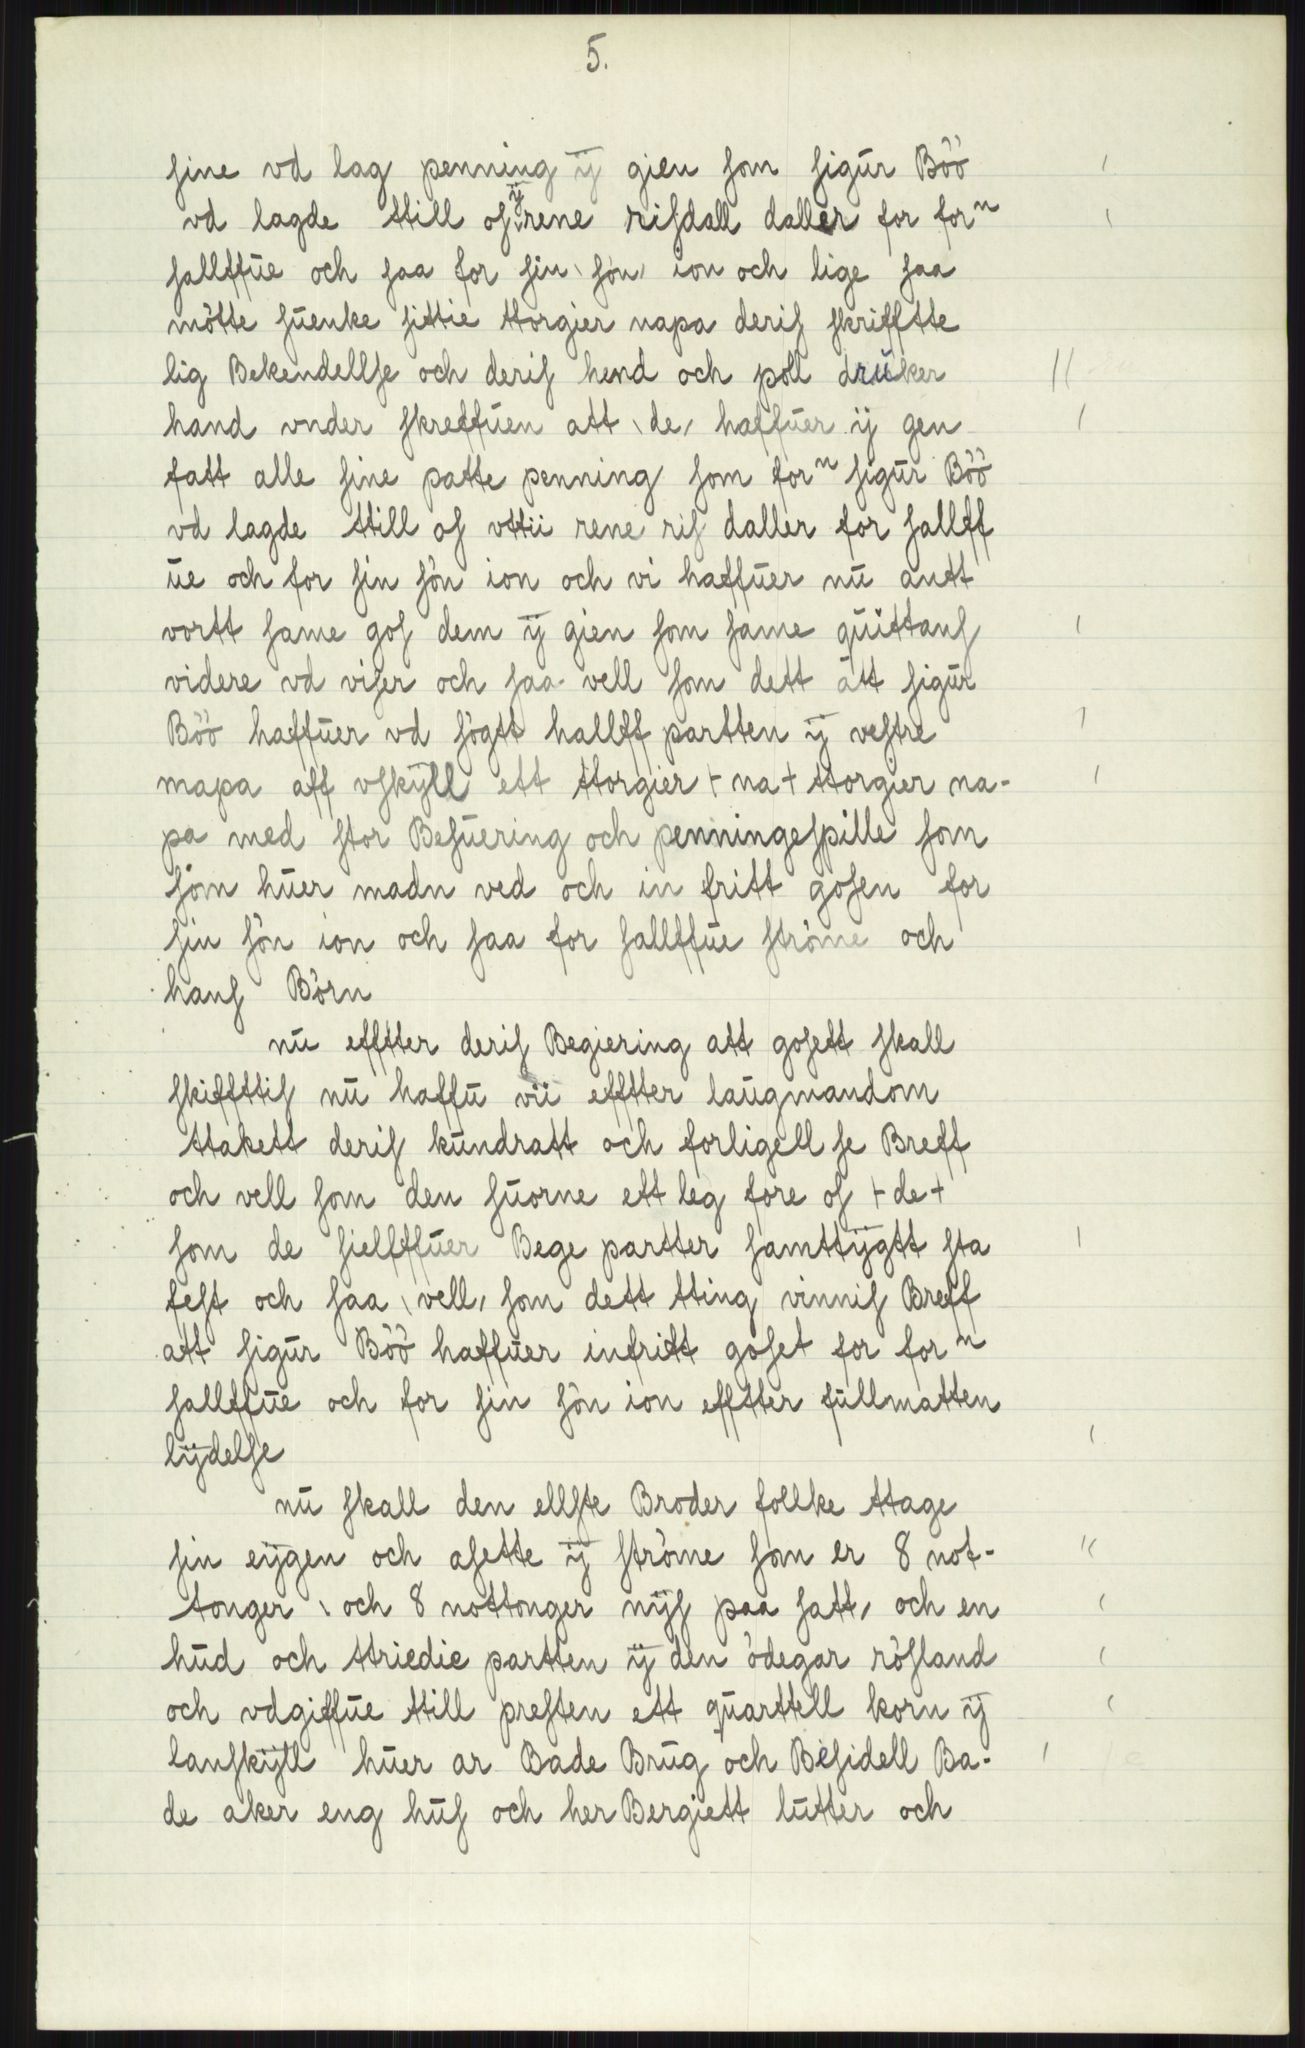 5.
sine vd lag penning ÿ gien som sigur Böö
vd lagde ttill os ÿ rene risdall daller for forⁿ
sallffue och saa for sin \son/ ion och lige saa
mötte suenke sittie ttorgier napa deris skrifftte
lig Bekendellse och deris hend och poll drúker
hand vnder skreffuen att \de/ haffuer ÿ gen
fatt alle sine patte penning som forⁿ sigur Böö
vd lagde ttill os vttii rene ris daller for sallff
ue och for sin sön ion och vi haffuer nu antt
vortt same gos dem ÿ gien som same quittans
videre vd viser och saa vell som dett att sigur
Böö haffuer vd sögtt hallff partten ÿ vestre
napa aff vskÿll ett ttorgier + na + ttorgier na-
pa med stor Besuering och penningespille som
söm huer madn ved och in fritt gosen for
sin sön ion och saa for sallffue ströme och
hans Börn
nu efftter deris Begiering att gosett skall
skiffttis nu haffu vii efftter laugmandom
ttakett deris kundratt och forligell se Breff
och vell som den suorne ett leg fore os + de +
som de sielffuer Bege partter samttÿgtt sta
fest och saa \vell/ som dett tting vinnis Breff
att sigur Böö haffuer infritt goset for forⁿ
sallffue och for sin sön ion efftter fullmatten
lÿdelse
nu skall den ellste Broder follke ttage
sin eÿgen och asette ÿ ströme som er 8 not-
tonger \och 8 nottonger nÿs paa satt/ och en
hud och ttriedie partten ÿ den ödegar rösland
och vdgiffue ttill presten ett quarttell korn ÿ
lanskÿll huer ar Bade Brug och Besidell Ba-
de aker eng hus och her Bergiett lutter och